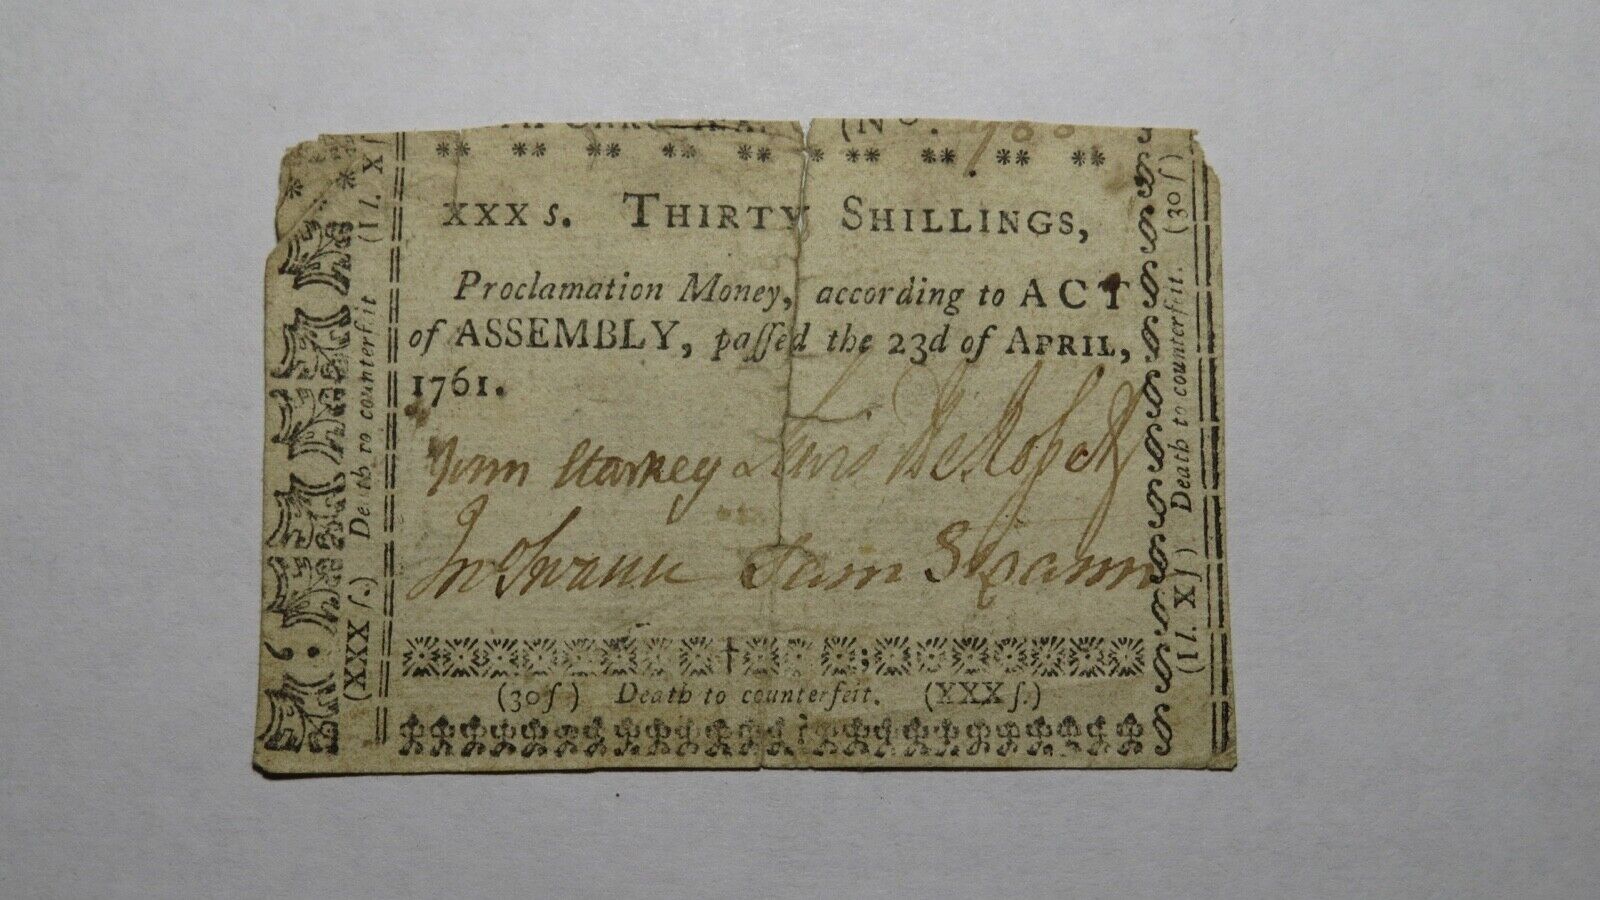 TH CAROLINA. (No.
XXX s. THIRTY SHILLINGS,
Proclamation Money, according to ACT
of ASSEMBLY, paſſed the 23d of APRIL,
1761.
Starkey Lewis DeRosset
Jno Swann Sam Swann
(30ſ) Death to counterfeit. (XXX ſ.)
(XXX ſ.) Death to counterfeit (1 l. X ſ
(1 l. X ſ) Death to counterfeit. (30 ſ)